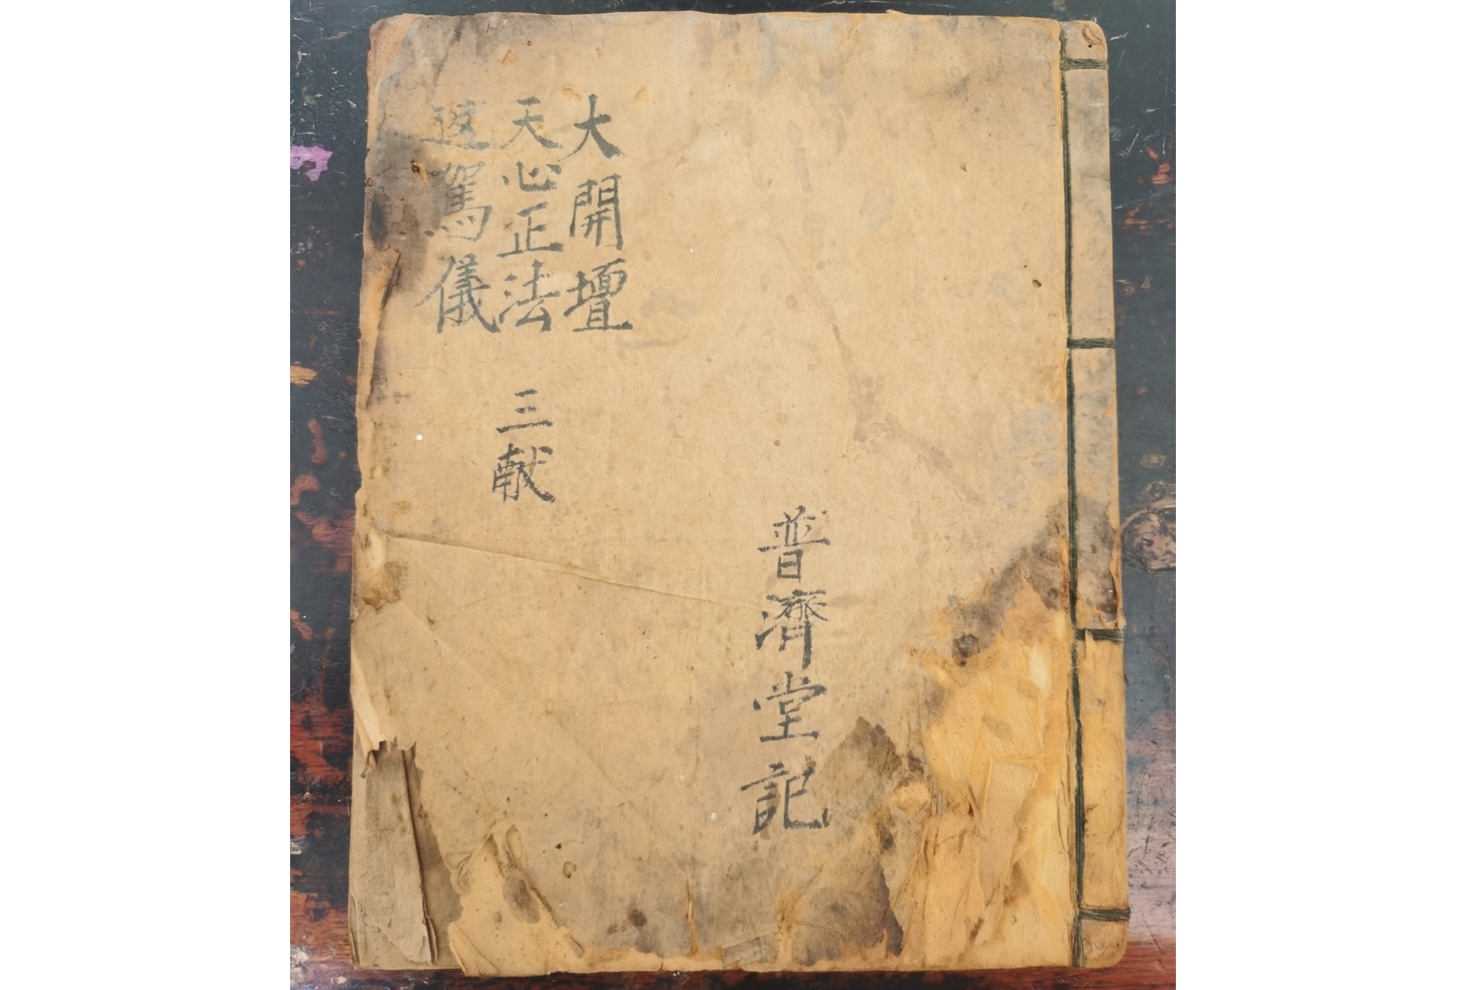 普濟堂記
大開壇
天心正法
三献
駕儀